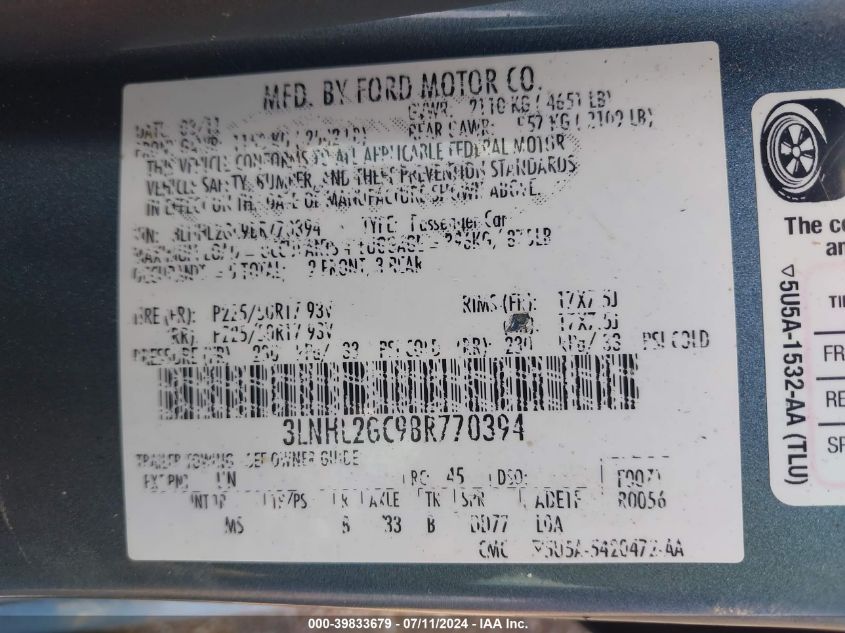 MFD. BY FORD MOTOR CO.
GVWR: 2110 KG ( 4651 LB)
DATE:
THIS VEHICLE CONFORMS TO ALL APPLICABLE FEDERAL MOTOR
VEHICLE SAFETY, BUMPER, AND THEFT PREVENTION STANDARDS
IN EFFECT ON THE DATE OF MANUFACTURE SHOWN ABOVE.
TYPE: Passenger Car
MAXIMUM LOAD = OCCUPANTS + LUGGAGE =
OCCUPANT = 5 TOTAL: 2 FRONT, 3 REAR
TIRE (FR): P225/50R17 93V RIMS (FR): 17X7.5J
(RR): P225/50R17 93V 17X7.5J
PRESSURE (FR) 230 kPa/ 33 PSI COLD (RR): 230 kPa/ 33 PSI COLD
3LNHL2GC9BR770394
TRAILER TOWING - SEE OWNER GUIDE
EXT PNT: UN RC: 45 DSO:
INT TR TP/PS R AXLE TR SPR R0056
MS 33 B
CMC 5U5A-5420472-AA
The co
an
TI
FR
RE
SP
▽5U5A-1532-AA (TLU)
000-39833679 / 07/11/2024 - IAA Inc.